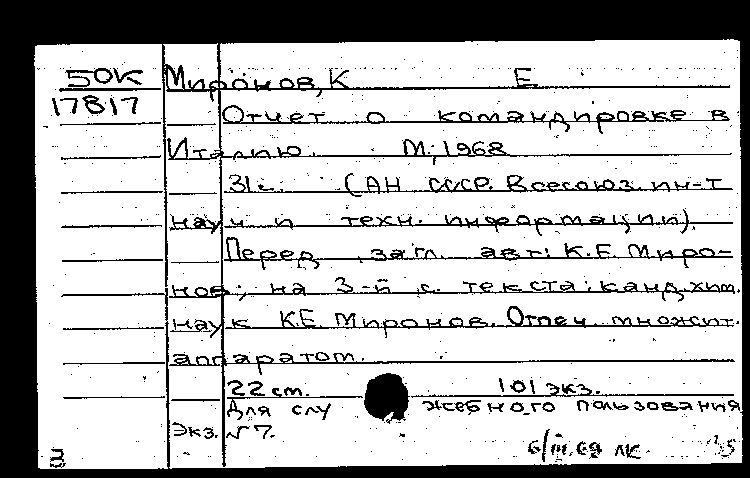 50К Миронов, К Е
17817 Отчет о командировке в
Италию. М., 1968
31с. (АН СССР. Всесоюз. ин-т
науч и техн. информации).
Перед загл. авт: К.Е. Миро-
нов; на 3-й с. текста: канд. хим.
наук К.Е. Миронов. Отпеч. множит.
аппаратом.
22 см. 101 экз.
Для служебного пользования
Экз. №7.
6/III.69 ЛК